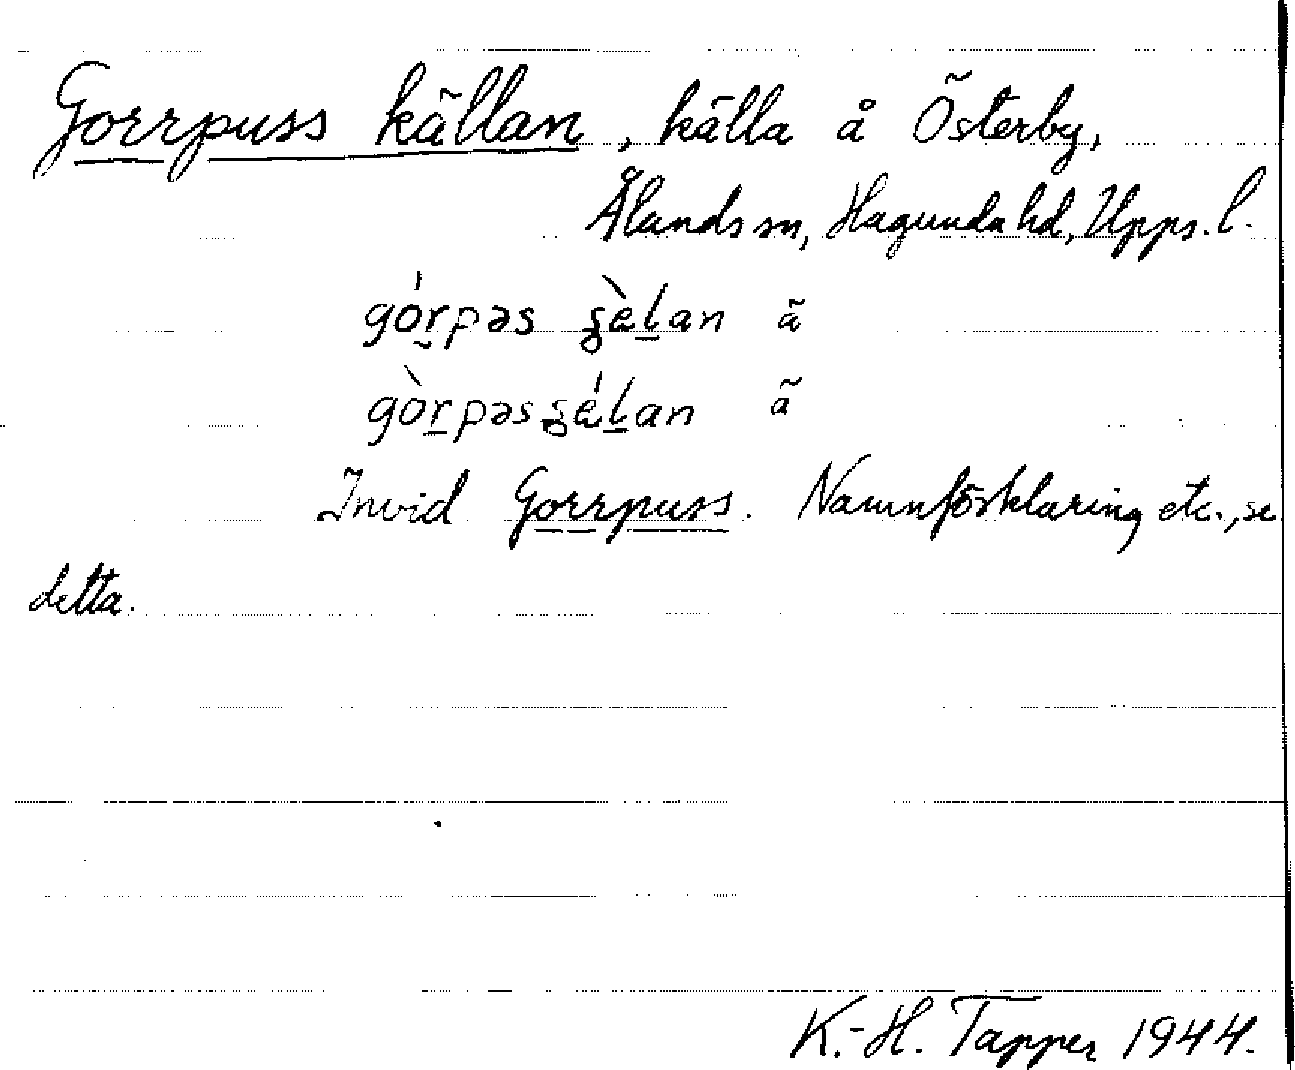 Gorrpuss källan, källa å Österby,
Ålands sn, Hagunda hd, Upps. l.
górpəs ʂèlan ã
gòrpəsʂélan ã
Invid Gorrpuss. Namnförklaring etc., se
detta.
K.-H. Tapper 1944.